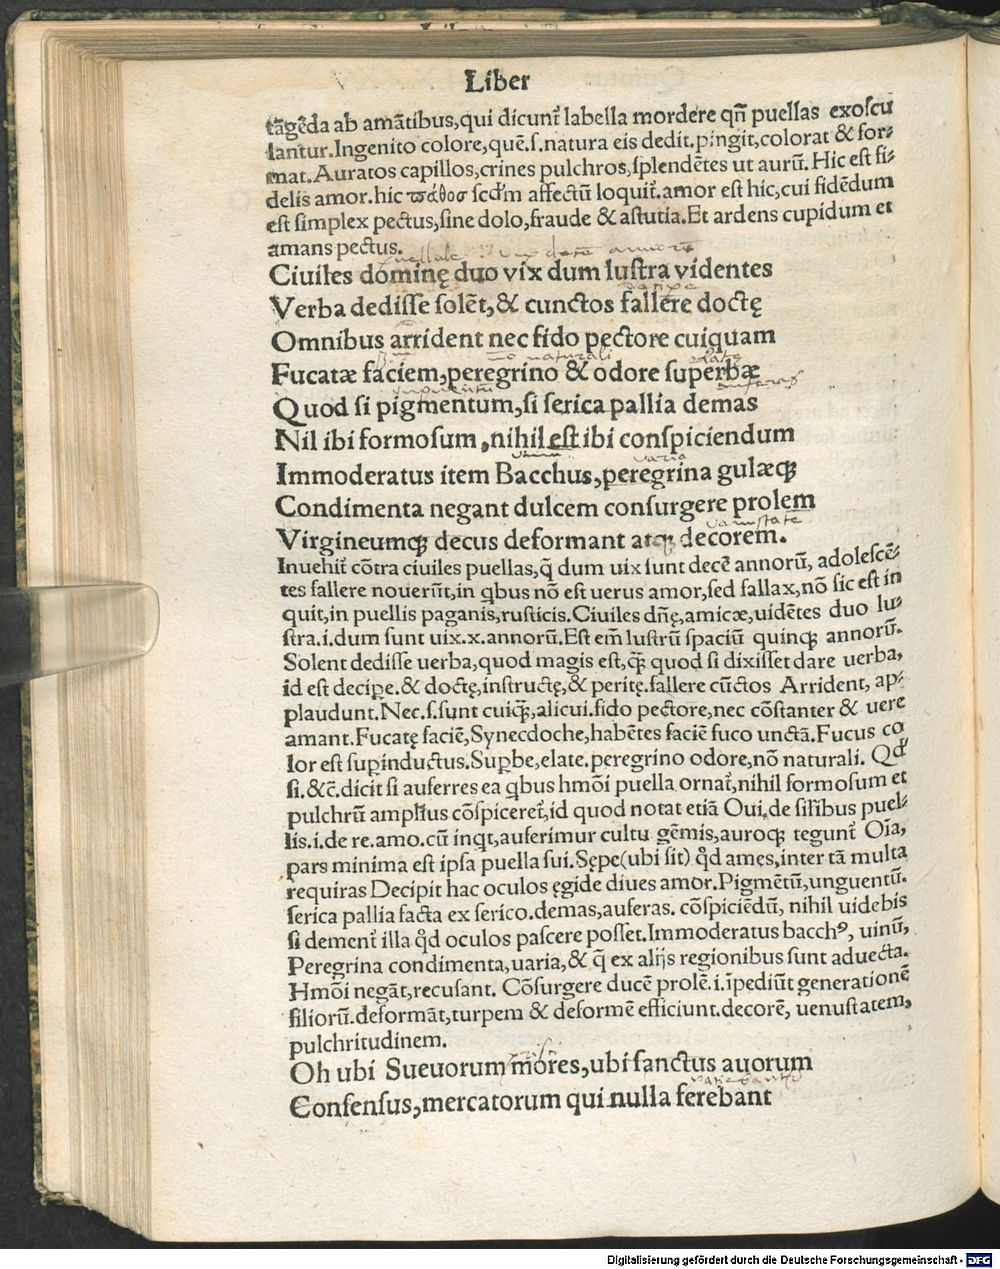 Liber
tãgẽda ab amãtibus,qui dicunt̃ labella mordere qñ puellas exoscu
lantur.Ingenito colore,quẽ.s.natura eis dedit.pingit,colorat & for-
mat.Auratos capillos,crines pulchros,splendẽtes ut aurũ. Hic est fi-
delis amor.hic ϖάθοσ scd'm affectũ loquit̃.amor est hic,cui fidẽdum
est simplex pectus,sine dolo,fraude & astutia.Et ardens cupidum et
amans pectus.
Ciuiles dominę duo vix dum lustra videntes
Verba dedisse solẽt,& cunctos fallere doctę
Omnibus arrident nec fido pectore cuiquam
Fucatæ faciem,peregrino & odore superbæ
Quod si pigmentum,si serica pallia demas
Nil ibi formosum,nihil est ibi conspiciendum
Immoderatus item Bacchus,peregrina gulæq;
Condimenta negant dulcem consurgere prolem
Virgineumq; decus deformant atq; decorem.
Inuehit̃ cõtra ciuiles puellas,q̃ dum uix sunt decẽ annorũ, adolescẽ-
tes fallere nouerũt,in qbus nõ est uerus amor,sed fallax,nõ sic est in
quit,in puellis paganis,rusticis.Ciuiles dñę,amicæ,uidẽtes duo lu-
stra.i.dum sunt uix.x.annorũ.Est em̃ lustrũ spaciũ quinq; annorũ.
Solent dedisse uerba,quod magis est,q̃ quod si dixisset dare uerba,
id est decipe.& doctę,instructę,& peritę.fallere cũctos Arrident, ap-
plaudunt.Nec.s.sunt cuiq̃,alicui.fido pectore,nec cõstanter & uere
amant.Fucatę faciẽ,Synecdoche,habẽtes faciẽ fuco unctã.Fucus co
lor est supinductus.Supbe,elate.peregrino odore,nõ naturali. Qd'
si.&c̃.dicit si auferres ea qbus hmõi puella ornat̃,nihil formosum et
pulchrũ amplius cõspiceret̃,id quod notat etiã Oui.de silibus puel-
lis.i.de re.amo.cũ inqt,auferimur cultu gẽmis,auroq; tegunt̃ Oĩa,
pars minima est ipsa puella sui.Sępe(ubi sit) qd ames,inter tã multa
requiras Decipit hac oculos ęgide diues amor.Pigmẽtũ,unguentũ.
serica pallia facta ex serico.demas,auferas. cõspiciẽdũ, nihil uidebis
si dement̃ illa qd oculos pascere posset.Immoderatus bacchꝰ, uinũ,
Peregrina condimenta,uaria,& q̃ ex alijs regionibus sunt aduecta.
Hmõi negãt,recusant. Cõsurgere ducẽ prolẽ.i.ĩpediũt generationẽ
filiorũ.deformãt,turpem & deformẽ efficiunt.decorẽ, uenustatem,
pulchritudinem.
Oh ubi Sueuorum mores,ubi sanctus auorum
Consensus,mercatorum qui nulla ferebant
Digitalisierung gefördert durch die Deutsche Forschungsgemeinschaft - DFG